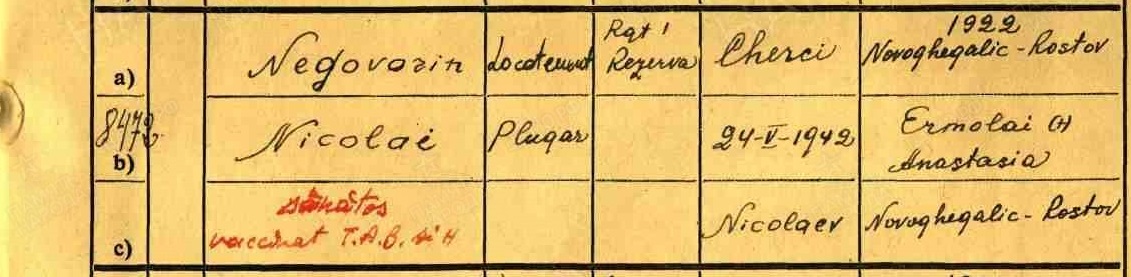 a) Negovorin Locotenent Rgt 1 Rezerva Cherci 1922 Novoghegalic - Rostov
8472 b) Nicolai Plugar 24-V-1942 Ermolai (+) Anastasia
c) sănătos Nicolaev Novoghegalic - Rostov
vaccinat T.A.B. si H